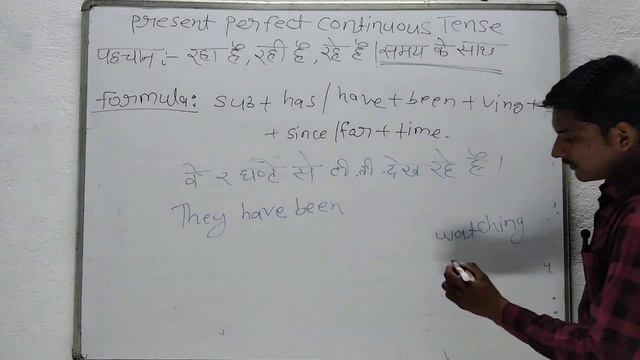 Present Perfect Continuous Tense
पहचान :- रहा है, रही है, रहे है । समय के साथ
Formula: Sub + has / have + been + Ving +
+ since / for + time.
वे २ घण्टे से टी.वी. देख रहे है ।
They have been
watching